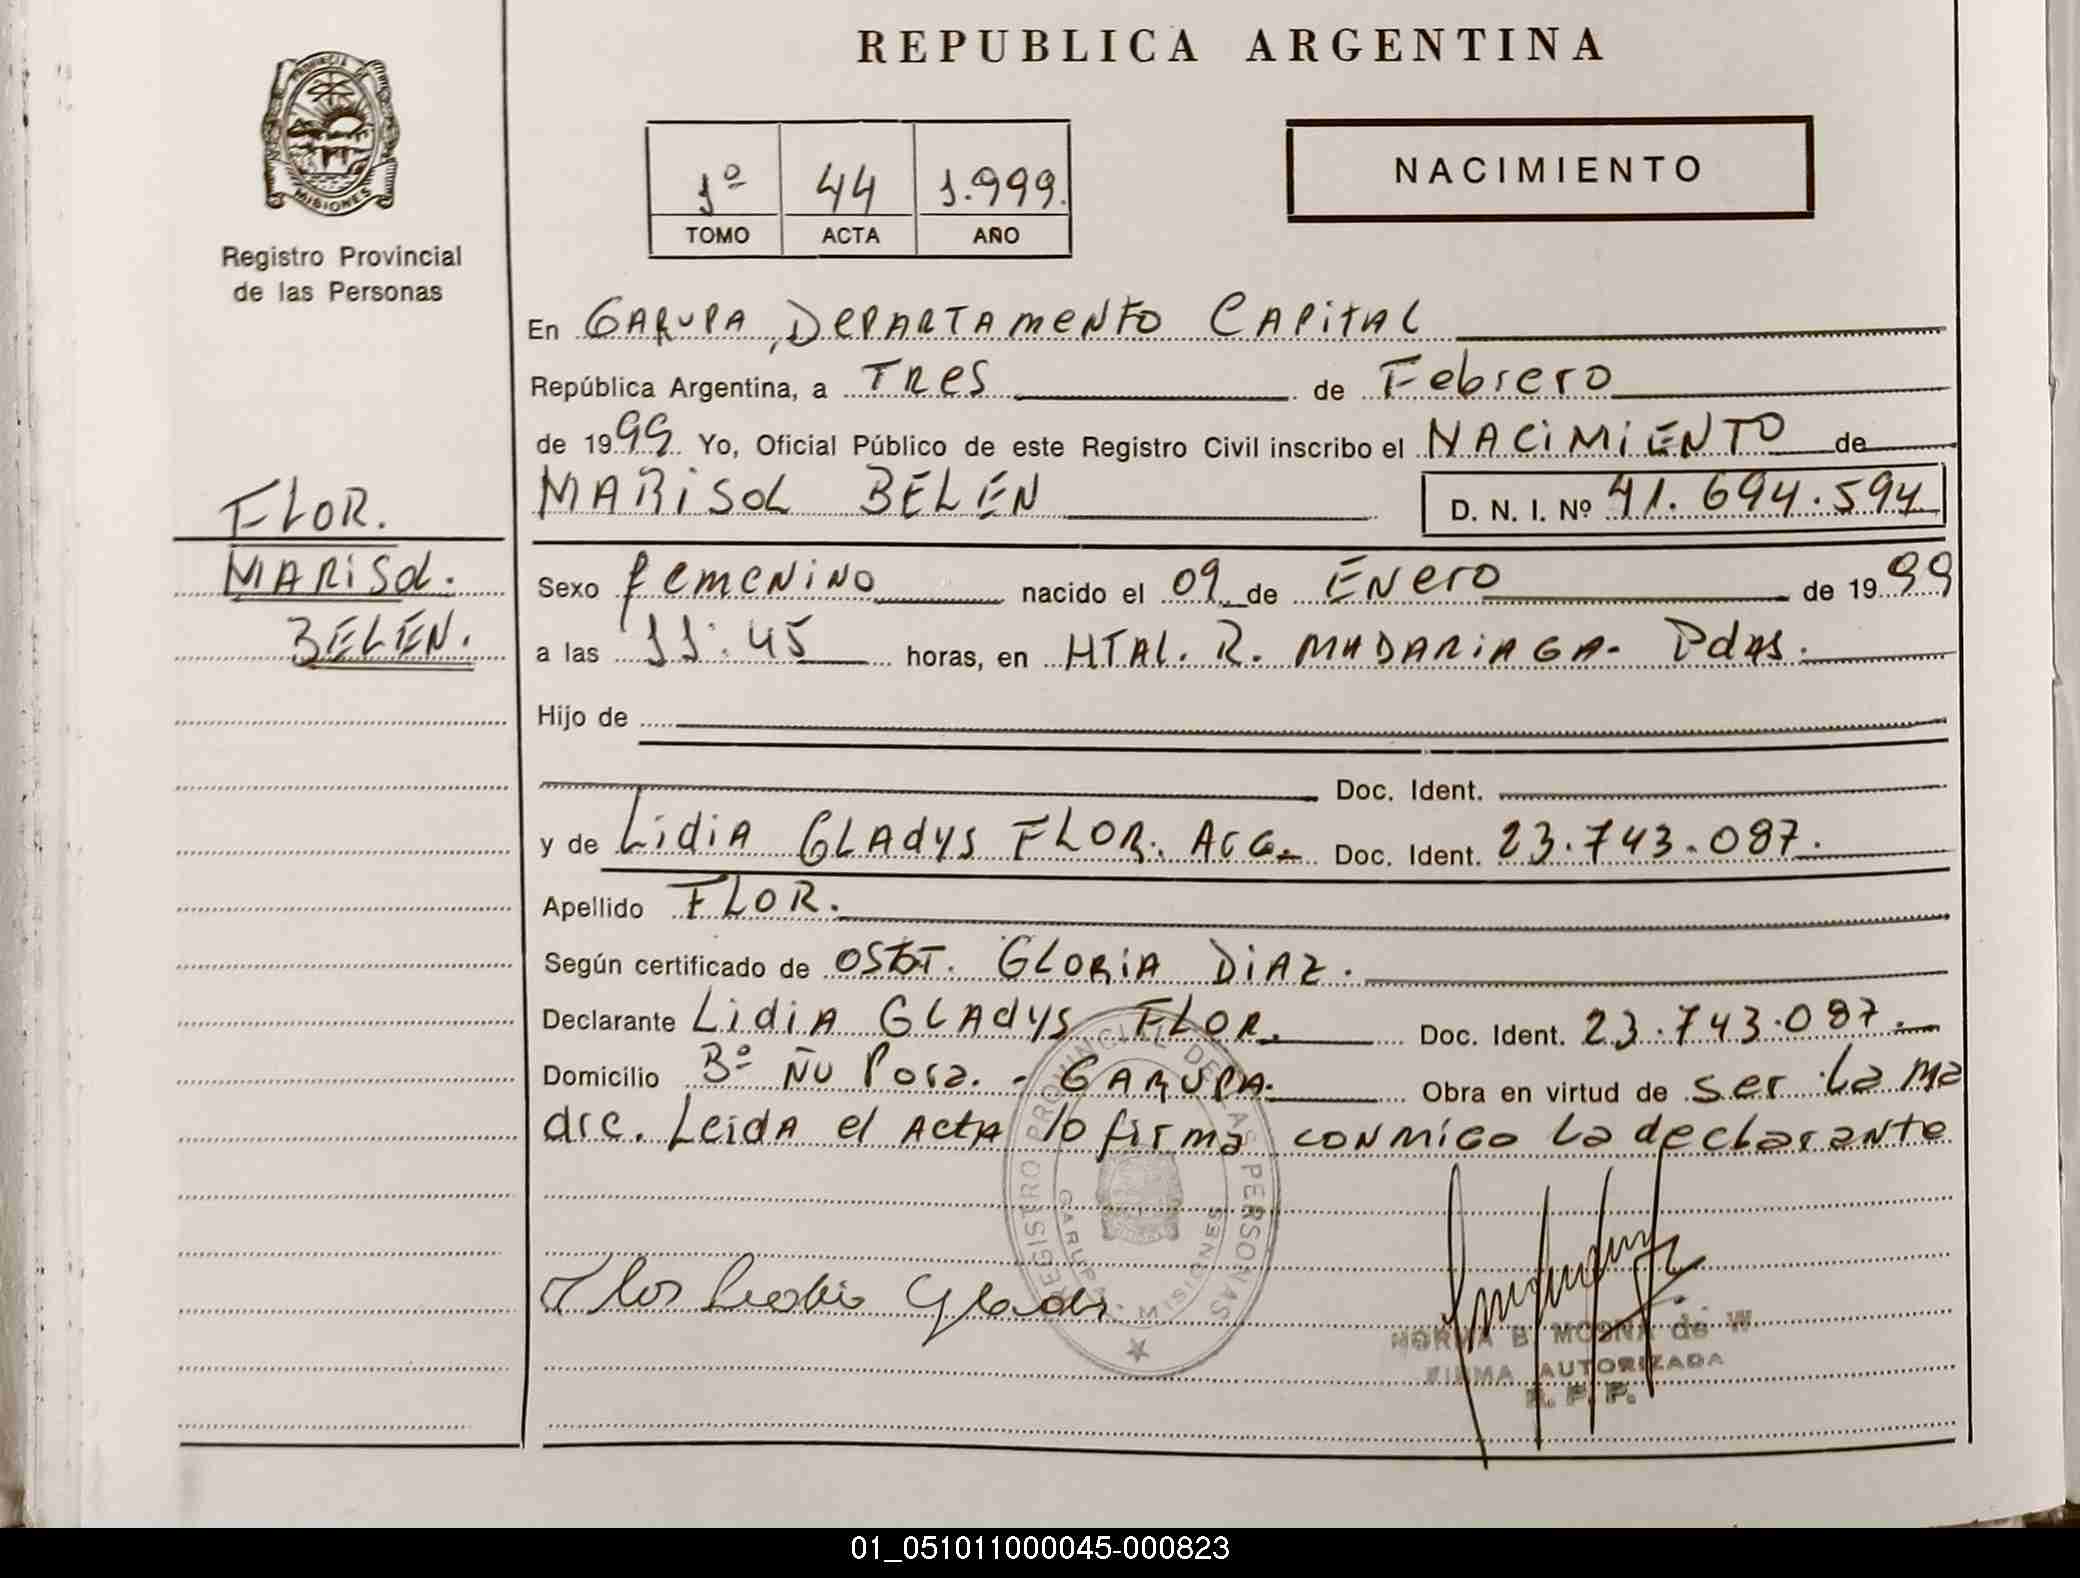 REPUBLICA ARGENTINA
PROVINCIA DE
MISIONES
Registro Provincial
de las Personas
1º 44 1.999.
TOMO ACTA AÑO
NACIMIENTO
FLOR.
MARISOL.
BELEN.
En GARUPA, DEPARTAMENTO CAPITAL
República Argentina, a TRES de Febrero
de 1999 Yo, Oficial Público de este Registro Civil inscribo el NACIMIENTO de
MARISOL BELEN D. N. I. Nº 41.694.594
Sexo femenino nacido el 09 de Enero de 1999
a las 11:45 horas, en HTAL. R. MADARIAGA. Pdas.
Hijo de
Doc. Ident.
y de Lidia GLADYS FLOR. ARG. Doc. Ident. 23.743.087.
Apellido FLOR.
Según certificado de OSTT. GLORIA DIAZ.
Declarante Lidia GLADYS FLOR. Doc. Ident. 23.743.087.
Domicilio Bº ÑU Pora. - GARUPA. Obra en virtud de ser La ma
dre. Leida el ActA lo firma conmigo La declarante
REGISTRO PROVINCIAL DE LAS PERSONAS
GARUPA - MISIONES
Flor Lidia Gladis
NORMA B de W
FIRMA AUTORIZADA
R. P. P.
01_051011000045-000823